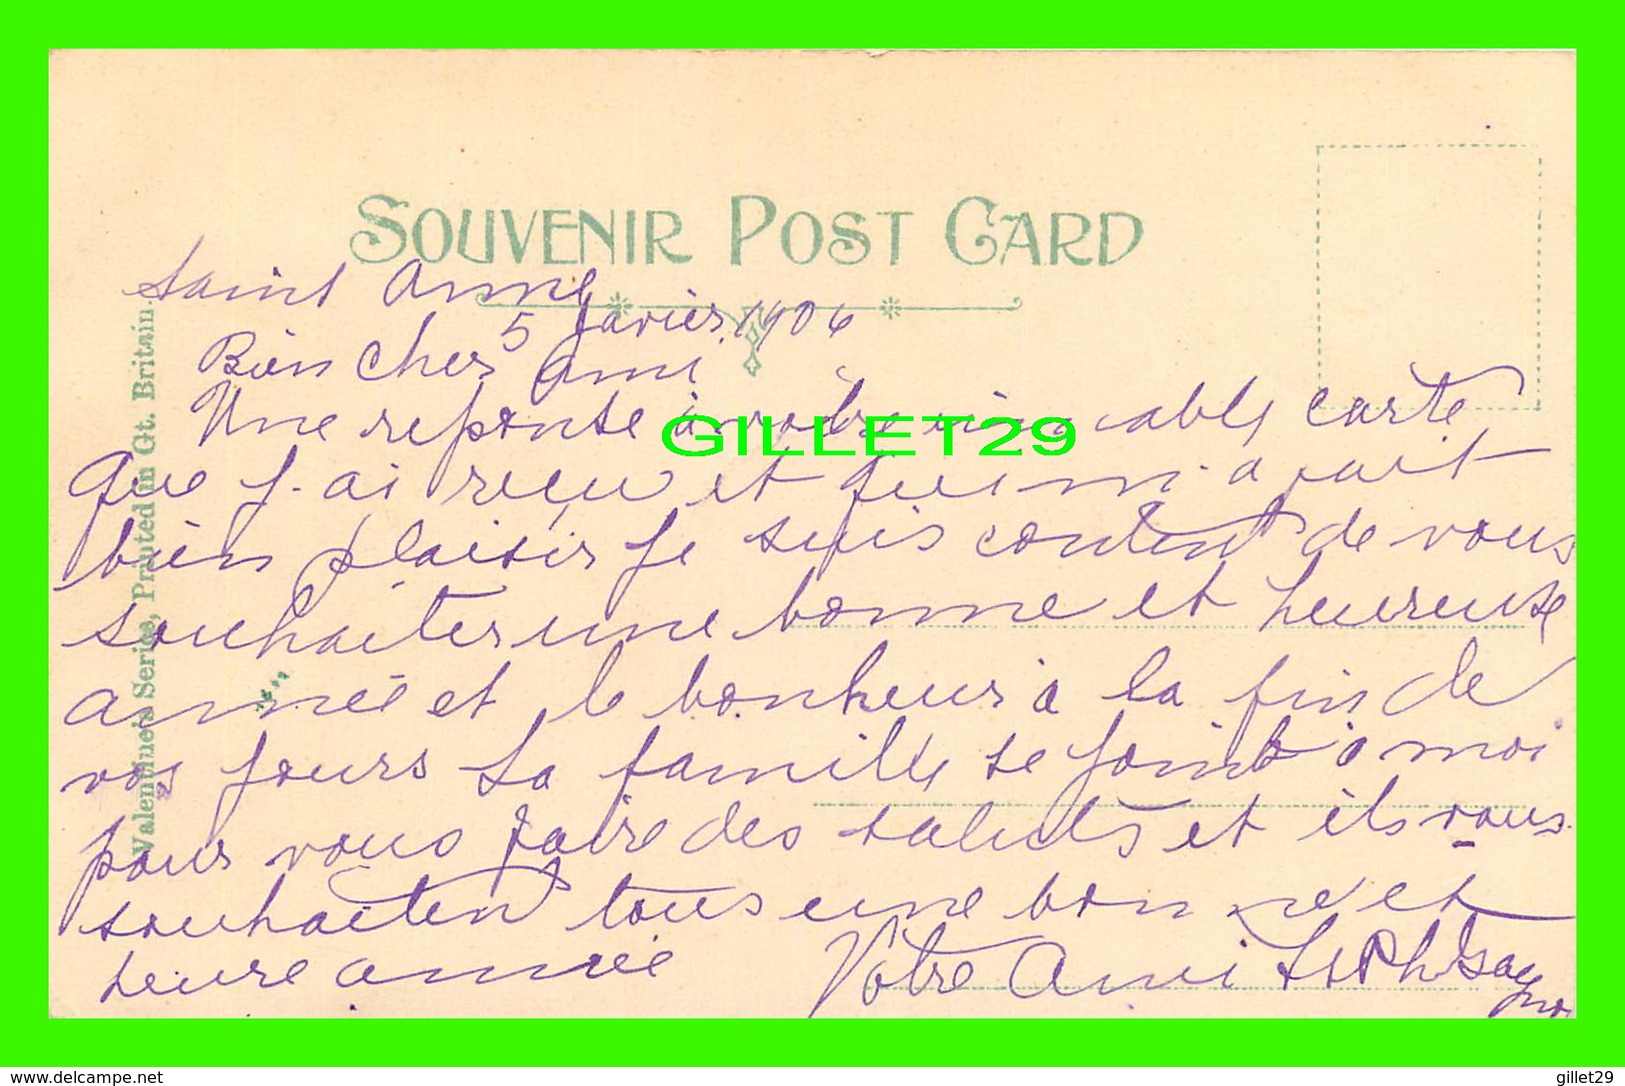 SOUVENIR POST CARD
Saint Anne
5 Javier 1906
Bien Cher Ami
Une reponse à votre aimable carte
que j-ai reçu et qui m-a fait
bien plaisir je suis content de vous
souhaiter une bonne et heureuse
année et le bonheur a la fin de
vos jours La famille se joint a moi
pour vous faire des saluts et ils vous
souhaiten tous une bonne et
heure année
Votre Ami
Valentine's Series, Printed in Gt. Britain
GILLET29
https://www.delcampe.net
gillet29